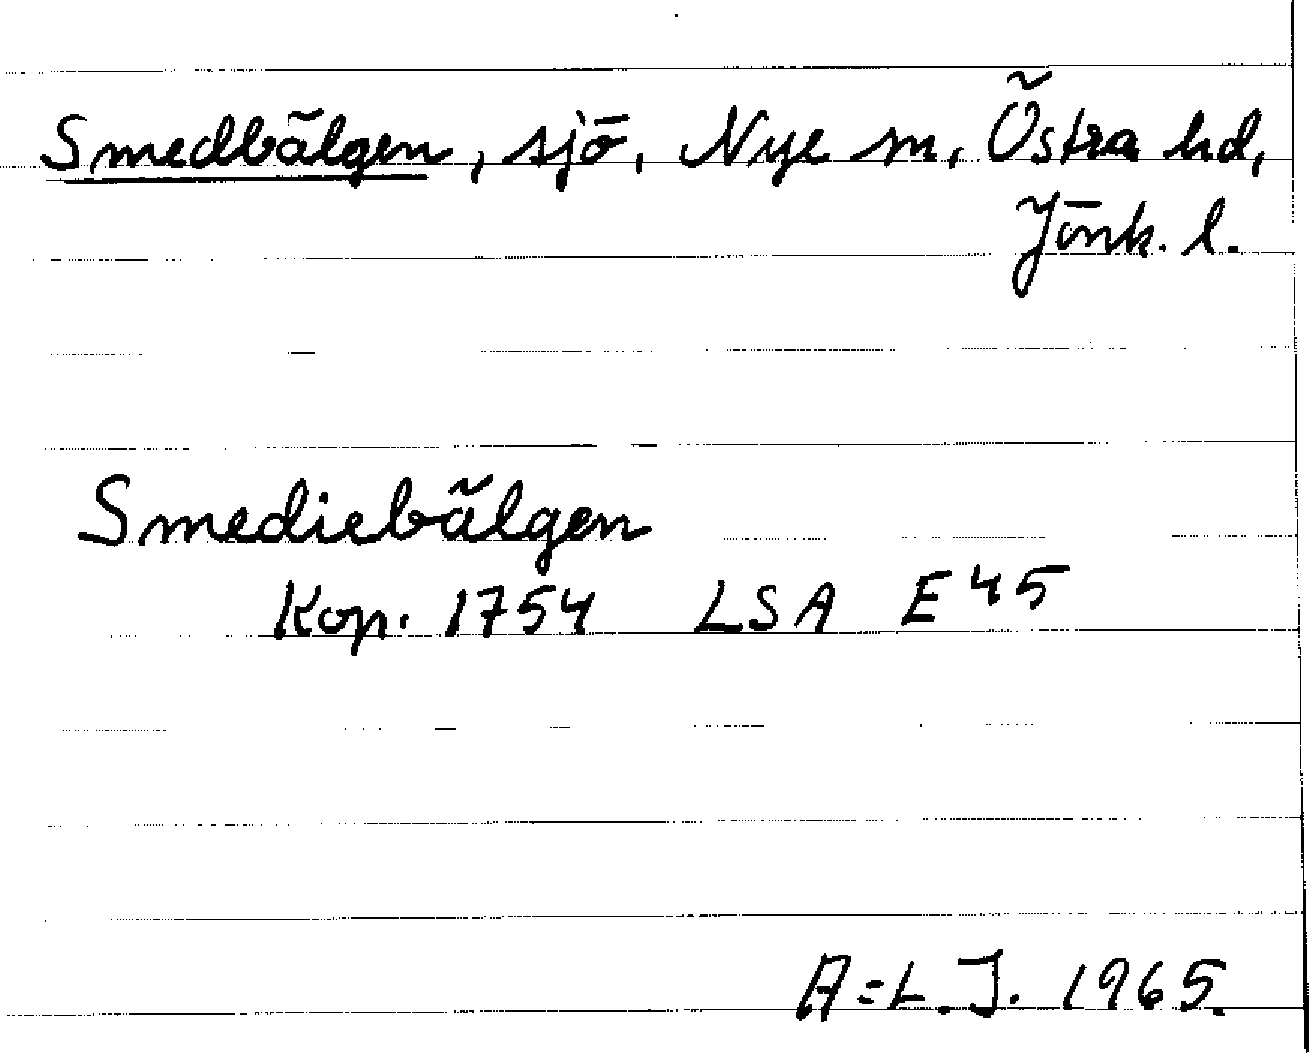 Smedbälgen, sjö, Nye sn, Östra hd,
Jönk. l.
Smediebälgen
Kop. 1754 LSA E45
A=L.J. 1965.